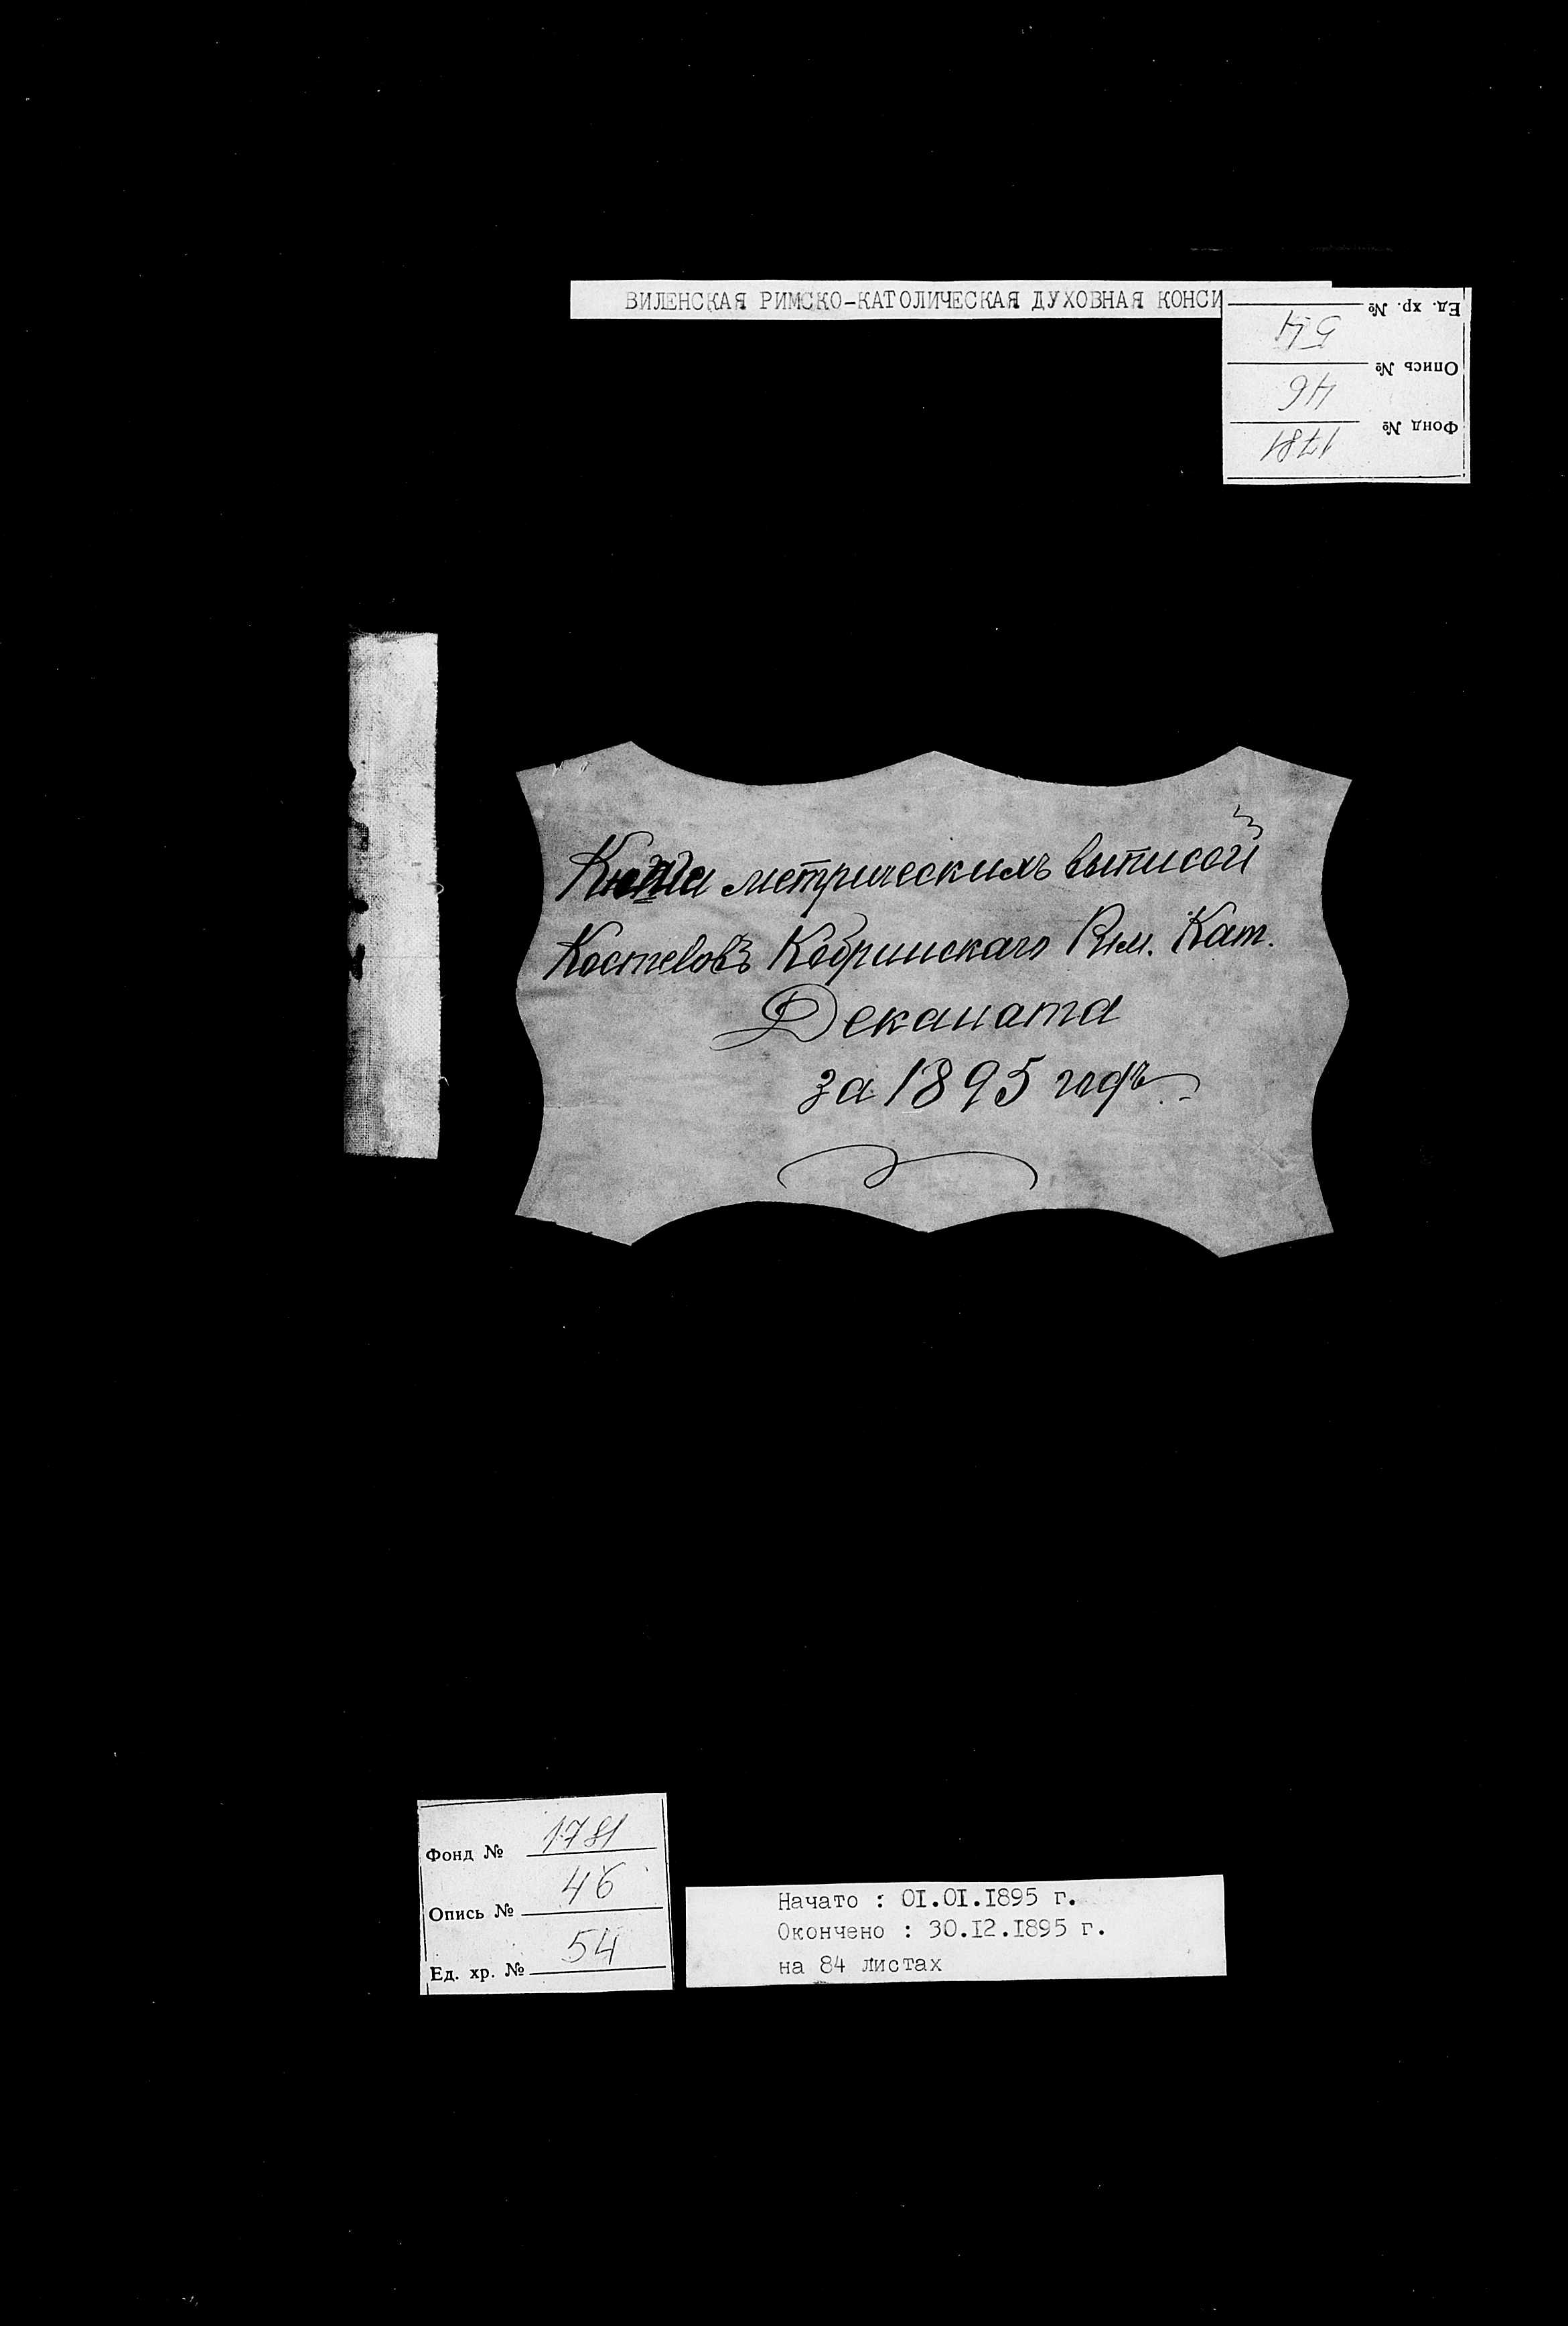 ВИЛЕНСКАЯ РИМСКО-КАТОЛИЧЕСКАЯ ДУХОВНАЯ КОНСИ
Фонд № 1781
Опись № 46
Ед. хр. № 54
Книга метрическихъ выписей
Костеловъ Кобринскаго Рим. Кат.
Деканата
за 1895 годъ
Фонд № 1781
Опись № 46
Ед. хр. № 54
Начато : 01.01.1895 г.
Окончено : 30.12.1895 г.
на 84 листах